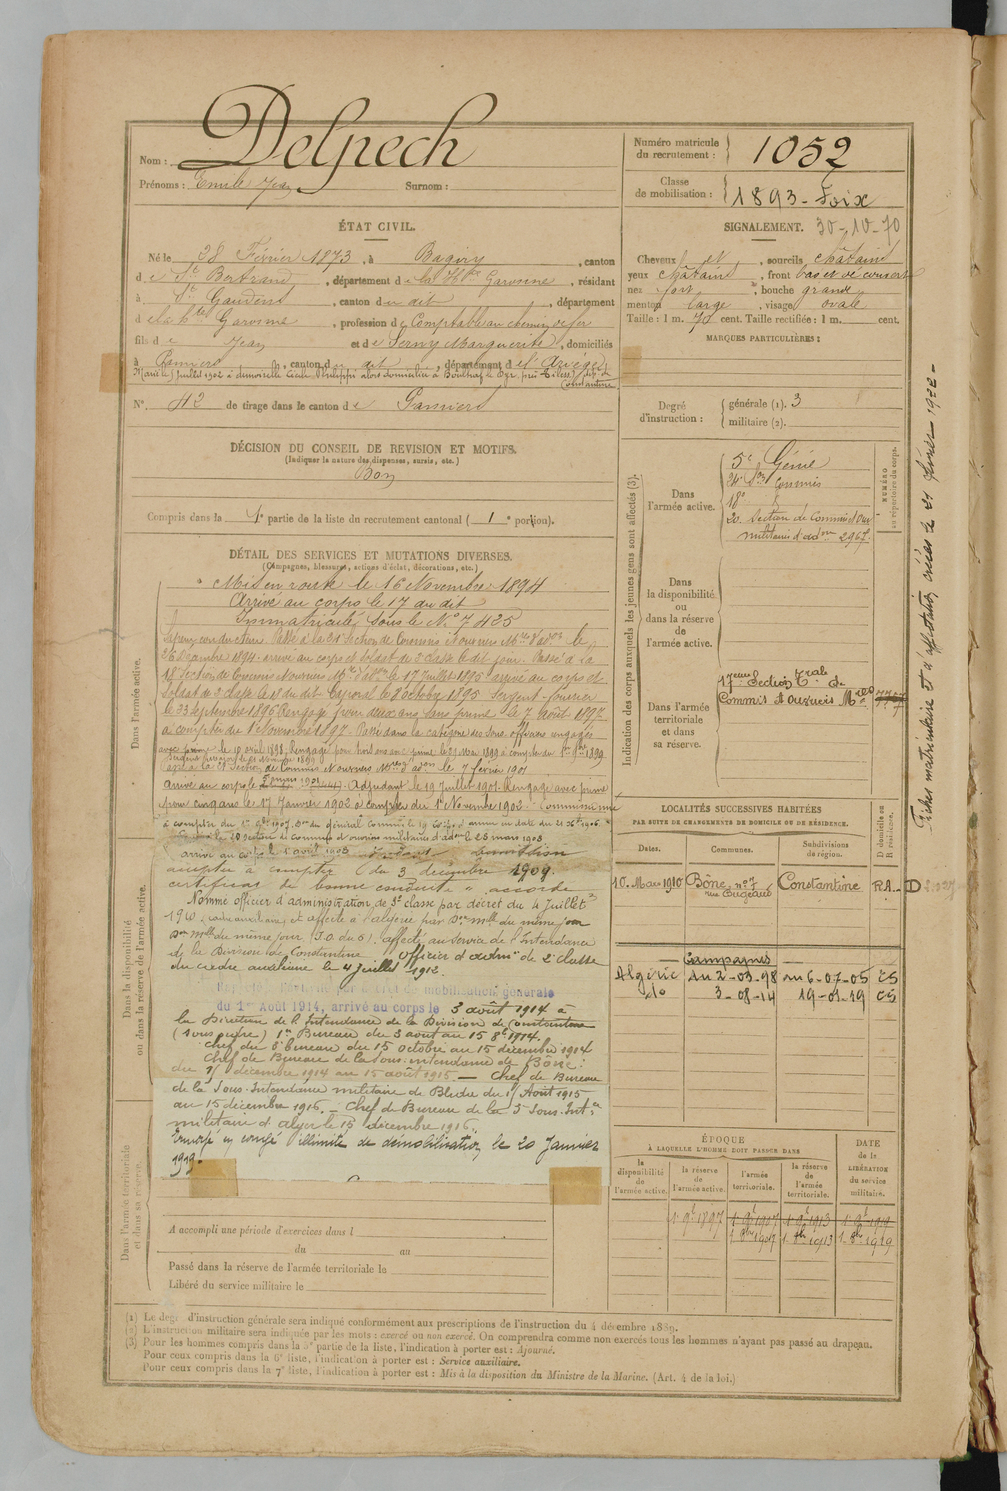 Nom : Delpech
Prénoms : Emile Jean Surnom :
Numéro matricule du recrutement : 1052
Classe de mobilisation : 1893 - Foix
ÉTAT CIVIL.
Né le 28 Février 1873, à Bagiry, canton
de St Bertrand, département de la Hte Garonne, résidant
à St Gaudens, canton du dit, département
de la Hte Garonne, profession de Comptable au chemin de fer
fils de Jean et de Serny Marguerite, domiciliés
à Pamiers, canton du dit, département de l'Ariège.
Marié le juillet 1902 à demoiselle Cécile Philippi alors domiciliée à
Constantine
N° 42 de tirage dans le canton de Pamiers
SIGNALEMENT. 30-10-70
Cheveux et, sourcils châtains
yeux châtains, front bas et découvert
nez fort, bouche grande
menton large, visage ovale
Taille : 1 m. 70 cent. Taille rectifiée : 1 m. cent.
MARQUES PARTICULIÈRES :
Degré d'instruction : générale (1). 3
militaire (2).
DÉCISION DU CONSEIL DE REVISION ET MOTIFS.
(Indiquer la nature des dispenses, sursis, etc.)
Bon
Compris dans la 1e partie de la liste du recrutement cantonal ( 1e portion).
DÉTAIL DES SERVICES ET MUTATIONS DIVERSES.
(Campagnes, blessures, actions d'éclat, décorations, etc.)
Dans l'armée active.
Mis en route le 16 Novembre 1894
Arrivé au corps le 17 du dit
Immatriculé sous le N° 7425
Sapeur conducteur. Passé à la 24e Section de Commis Ouvriers Mres d'adon le
26 Décembre 1894. arrivé au corps et soldat de 2e classe le dit jour. Passé à la
18e Section de Commis Ouvriers Mres d'Adon le 17 Juillet 1895 arrivé au corps et
Soldat de 2e classe le 18 du dit. Caporal le 2 octobre 1895. Sergent-fourrier
le 23 Septembre 1896 Rengagé pour deux ans sans prime le 7 août 1897
à compter du 1er Novembre 1897. Passé dans la catégorie des Sous-officiers rengagés
avec prime le 10 avril 1898. Rengagé pour trois ans avec prime le 21 Mars 1899 à compter du 1er 9bre 1899
Passé à la 21e Section de Commis Ouvriers Mres d'adon le 7 février 1901
arrivé au corps le 2 mars 1901. Adjudant le 19 Juillet 1901. Rengagé avec prime
pour cinq ans le 17 Janvier 1902 à compter du 1er Novembre 1902. Commissionné
à compter du 1er 9bre 1907. Don du général Commt le 19e Corps d'armée en date du 26 7bre 1906.
20 Section de commis et ouvriers militaires d'adon le 25 mars 1903
arrivé au corps le 1er avril 1903
compter du 3 décembre 1909.
certificat de bonne conduite " accordé
Dans la disponibilité ou dans la réserve de l'armée active.
Nommé officier d'administration de 3e classe par décret du 4 Juillet
1910 (cadre auxiliaire) et affecté à l'algérie par Don mlle du même jour
Don mlle du même jour (J.O. du 6). affecté au Service de l'Intendance
de la Division de Constantine. Officier d'admon de 2e classe
du cadre auxiliaire le 4 juillet 1912.
Rappelé à l'activité par décret de mobilisation générale
du 1er Août 1914, arrivé au corps le 3 août 1914 à
la Direction de l'Intendance de la Division de Constantine
(sous ordre) 1er Bureau du 3 août au 15 8bre 1914.
Chef du 3e bureau du 15 octobre au 15 décembre 1914
Chef de Bureau de la Sous-intendance de Bône
du 15 décembre 1914 au 15 août 1915 — Chef de Bureau
de la Sous-Intendance militaire de Blida du 15 Août 1915
au 15 décembre 1916. — Chef de Bureau de la 3e Sous-Intce
militaire d'alger le 15 décembre 1916.
Envoyé en congé illimité de démobilisation le 20 Janvier
1919.
Dans l'armée territoriale et dans sa réserve.
A accompli une période d'exercices dans l
du au
Passé dans la réserve de l'armée territoriale le
Libéré du service militaire le
Indication des corps auxquels les jeunes gens sont affectés (3).
NUMÉRO au répertoire du corps.
Dans l'armée active.
5e Génie
24e Son Commis
18e
20 Section de Commis et Ouv
militaires d'adon 2967
Dans la disponibilité ou dans la réserve de l'armée active.
Dans l'armée territoriale et dans sa réserve.
17eme Section Trale de
Commis et ouvriers Mres
LOCALITÉS SUCCESSIVES HABITÉES
PAR SUITE DE CHANGEMENTS DE DOMICILE OU DE RÉSIDENCE.
Dates. Communes. Subdivisions de région. D domicile ou R résidence.
10. Mars 1910 Bône, n° 7 rue Bugeaud Constantine RA. D
Campagnes
Algérie du 2-03-98 au 6-07-05 CS
do 3-08-14 19-01-19 CS
ÉPOQUE
À LAQUELLE L'HOMME DOIT PASSER DANS
la disponibilité de l'armée active. la réserve de l'armée active. l'armée territoriale. la réserve de l'armée territoriale. DATE de la LIBÉRATION du service militaire.
1. 9e 1897 1. 9e 1907 1. 9e 1913 1. 9e 1919
1. 8bre 1907 1. 8bre 1913 1. 8bre 1919
Fiches matriculaire et d'affectation créées le 21 février 1922 -
(1) Le degré d'instruction générale sera indiqué conformément aux prescriptions de l'instruction du 4 décembre 1889.
(2) L'instruction militaire sera indiquée par les mots : exercé ou non exercé. On comprendra comme non exercés tous les hommes n'ayant pas passé au drapeau.
(3) Pour les hommes compris dans la 5e partie de la liste, l'indication à porter est : Ajourné.
Pour ceux compris dans la 6e liste, l'indication à porter est : Service auxiliaire.
Pour ceux compris dans la 7e liste, l'indication à porter est : Mis à la disposition du Ministre de la Marine. (Art. 4 de la loi.)